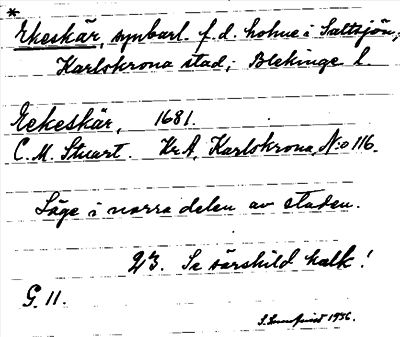 *
Ekeskär, synbarl. f.d. holme i Saltsjön,
Karlskrona stad, Blekinge l.
Eekeskär, 1681.
C. M. Stuart. Kr A, Karlskrona, N:o 116.
Läge i norra delen av staden.
23. Se särskild kalk!
G. 11.
1936.